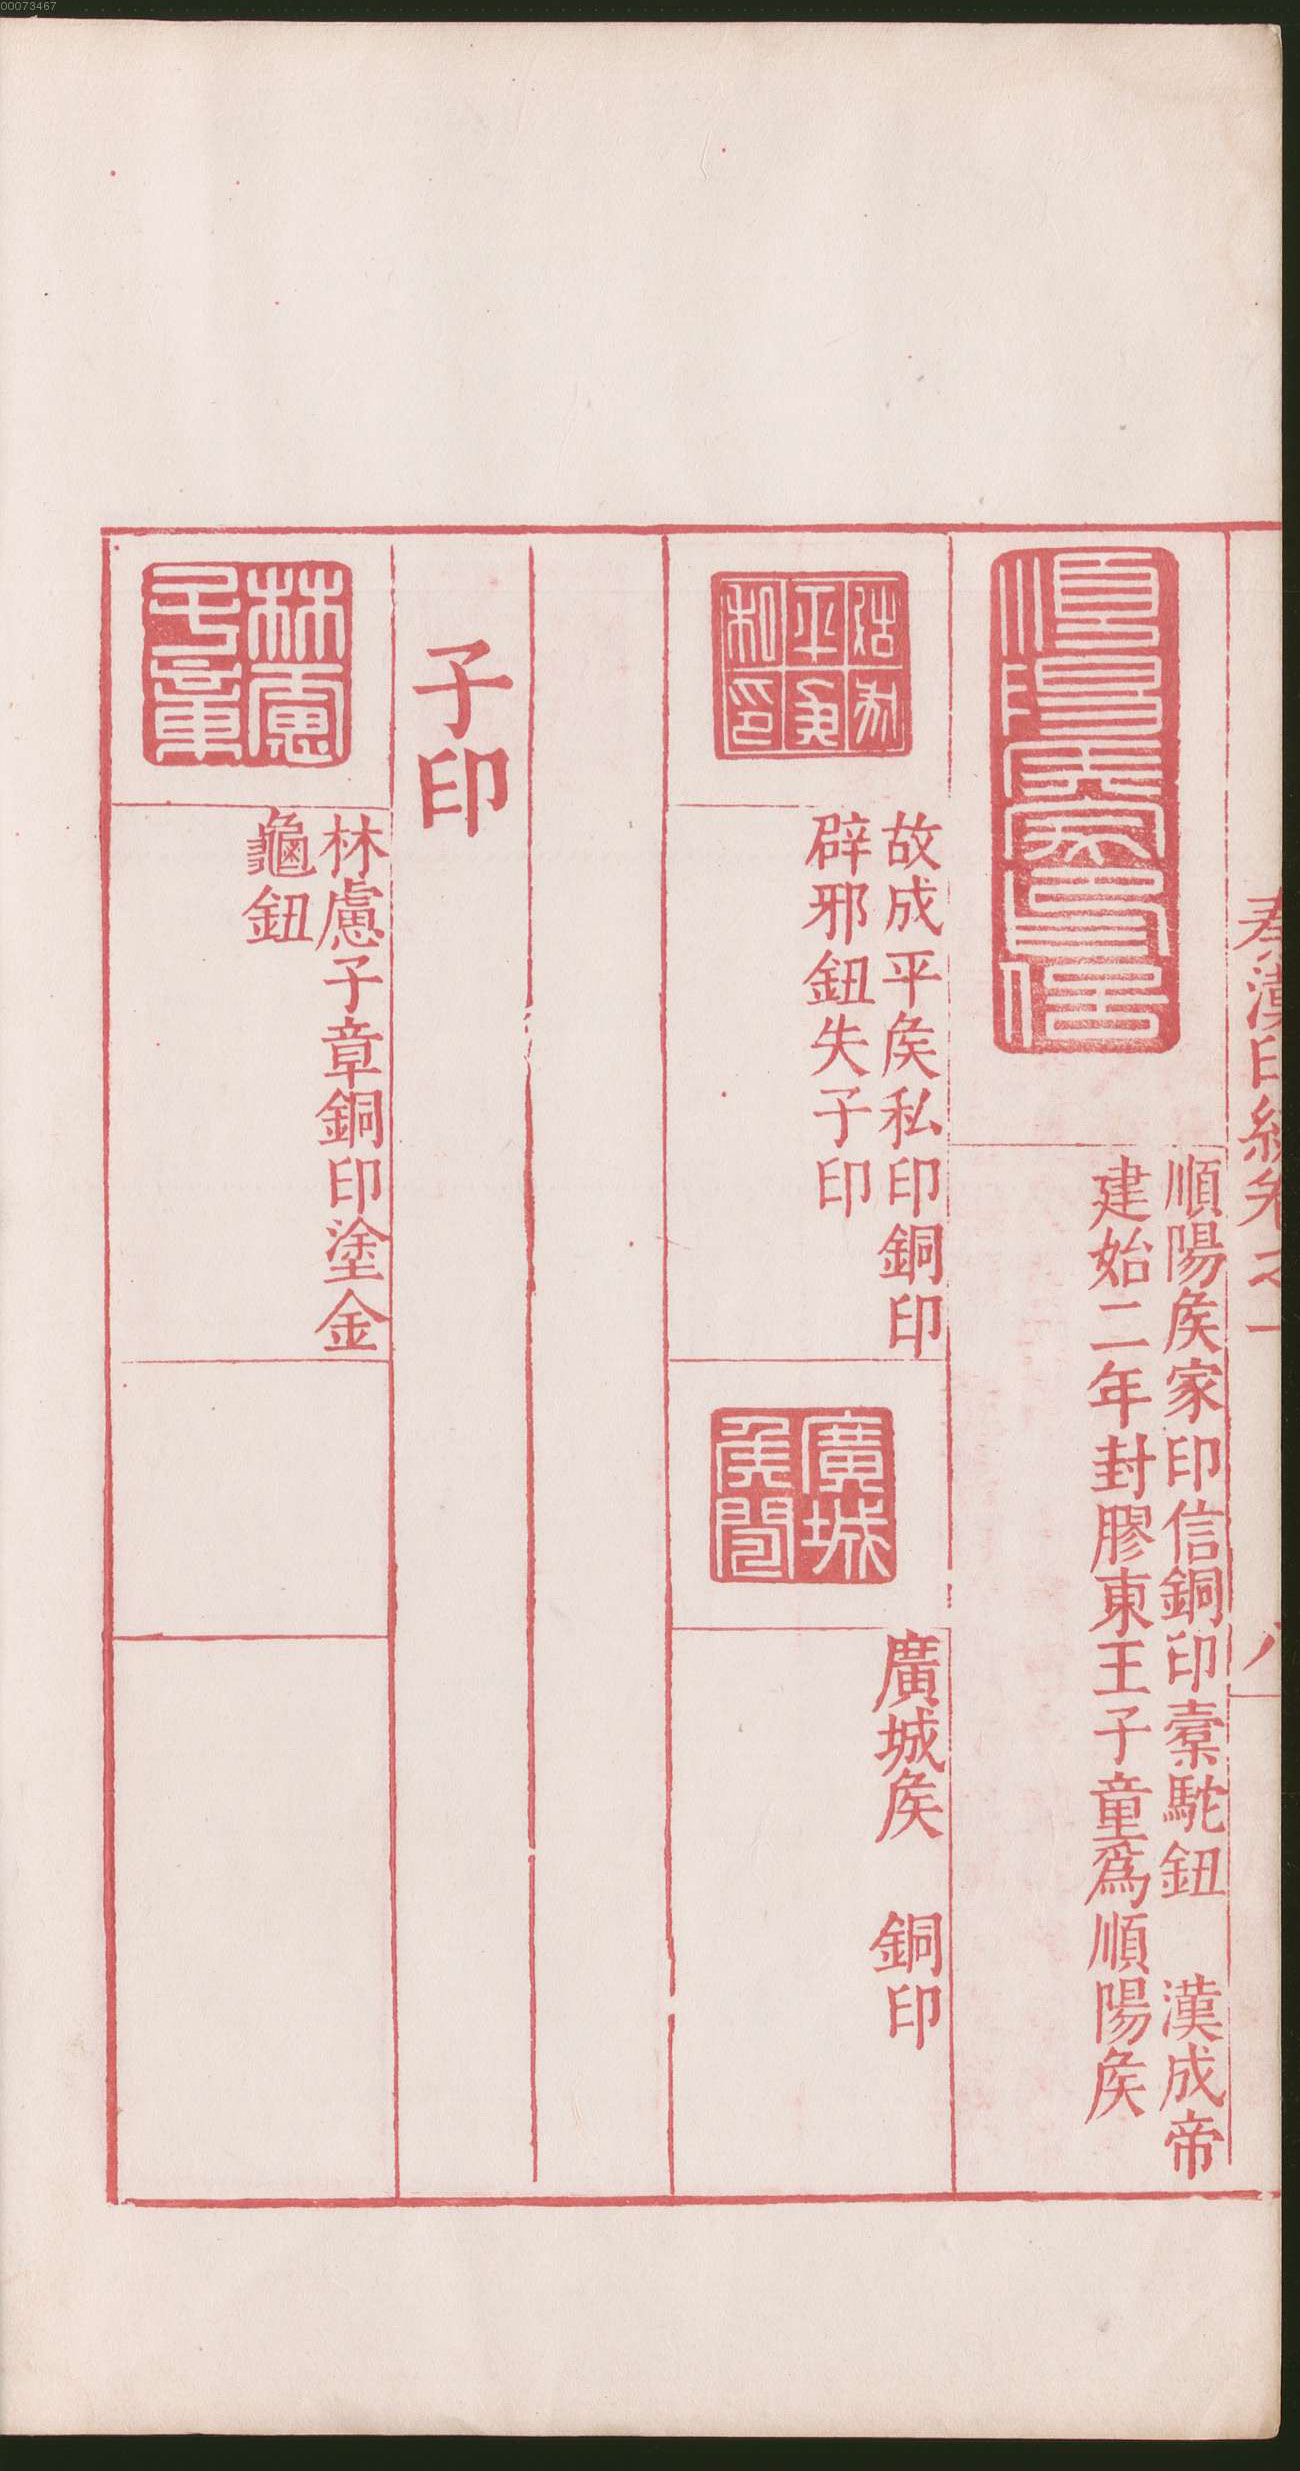 00073467
秦漢印統卷之一
八
順陽矦家印信銅印槖駝鈕 漢成帝
建始二年封膠東王子童爲順陽矦
故成平矦私印銅印
辟邪鈕失子印
廣城矦 銅印
子印
林慮子章銅印塗金
龜鈕
順陽矦家印信
林慮子章